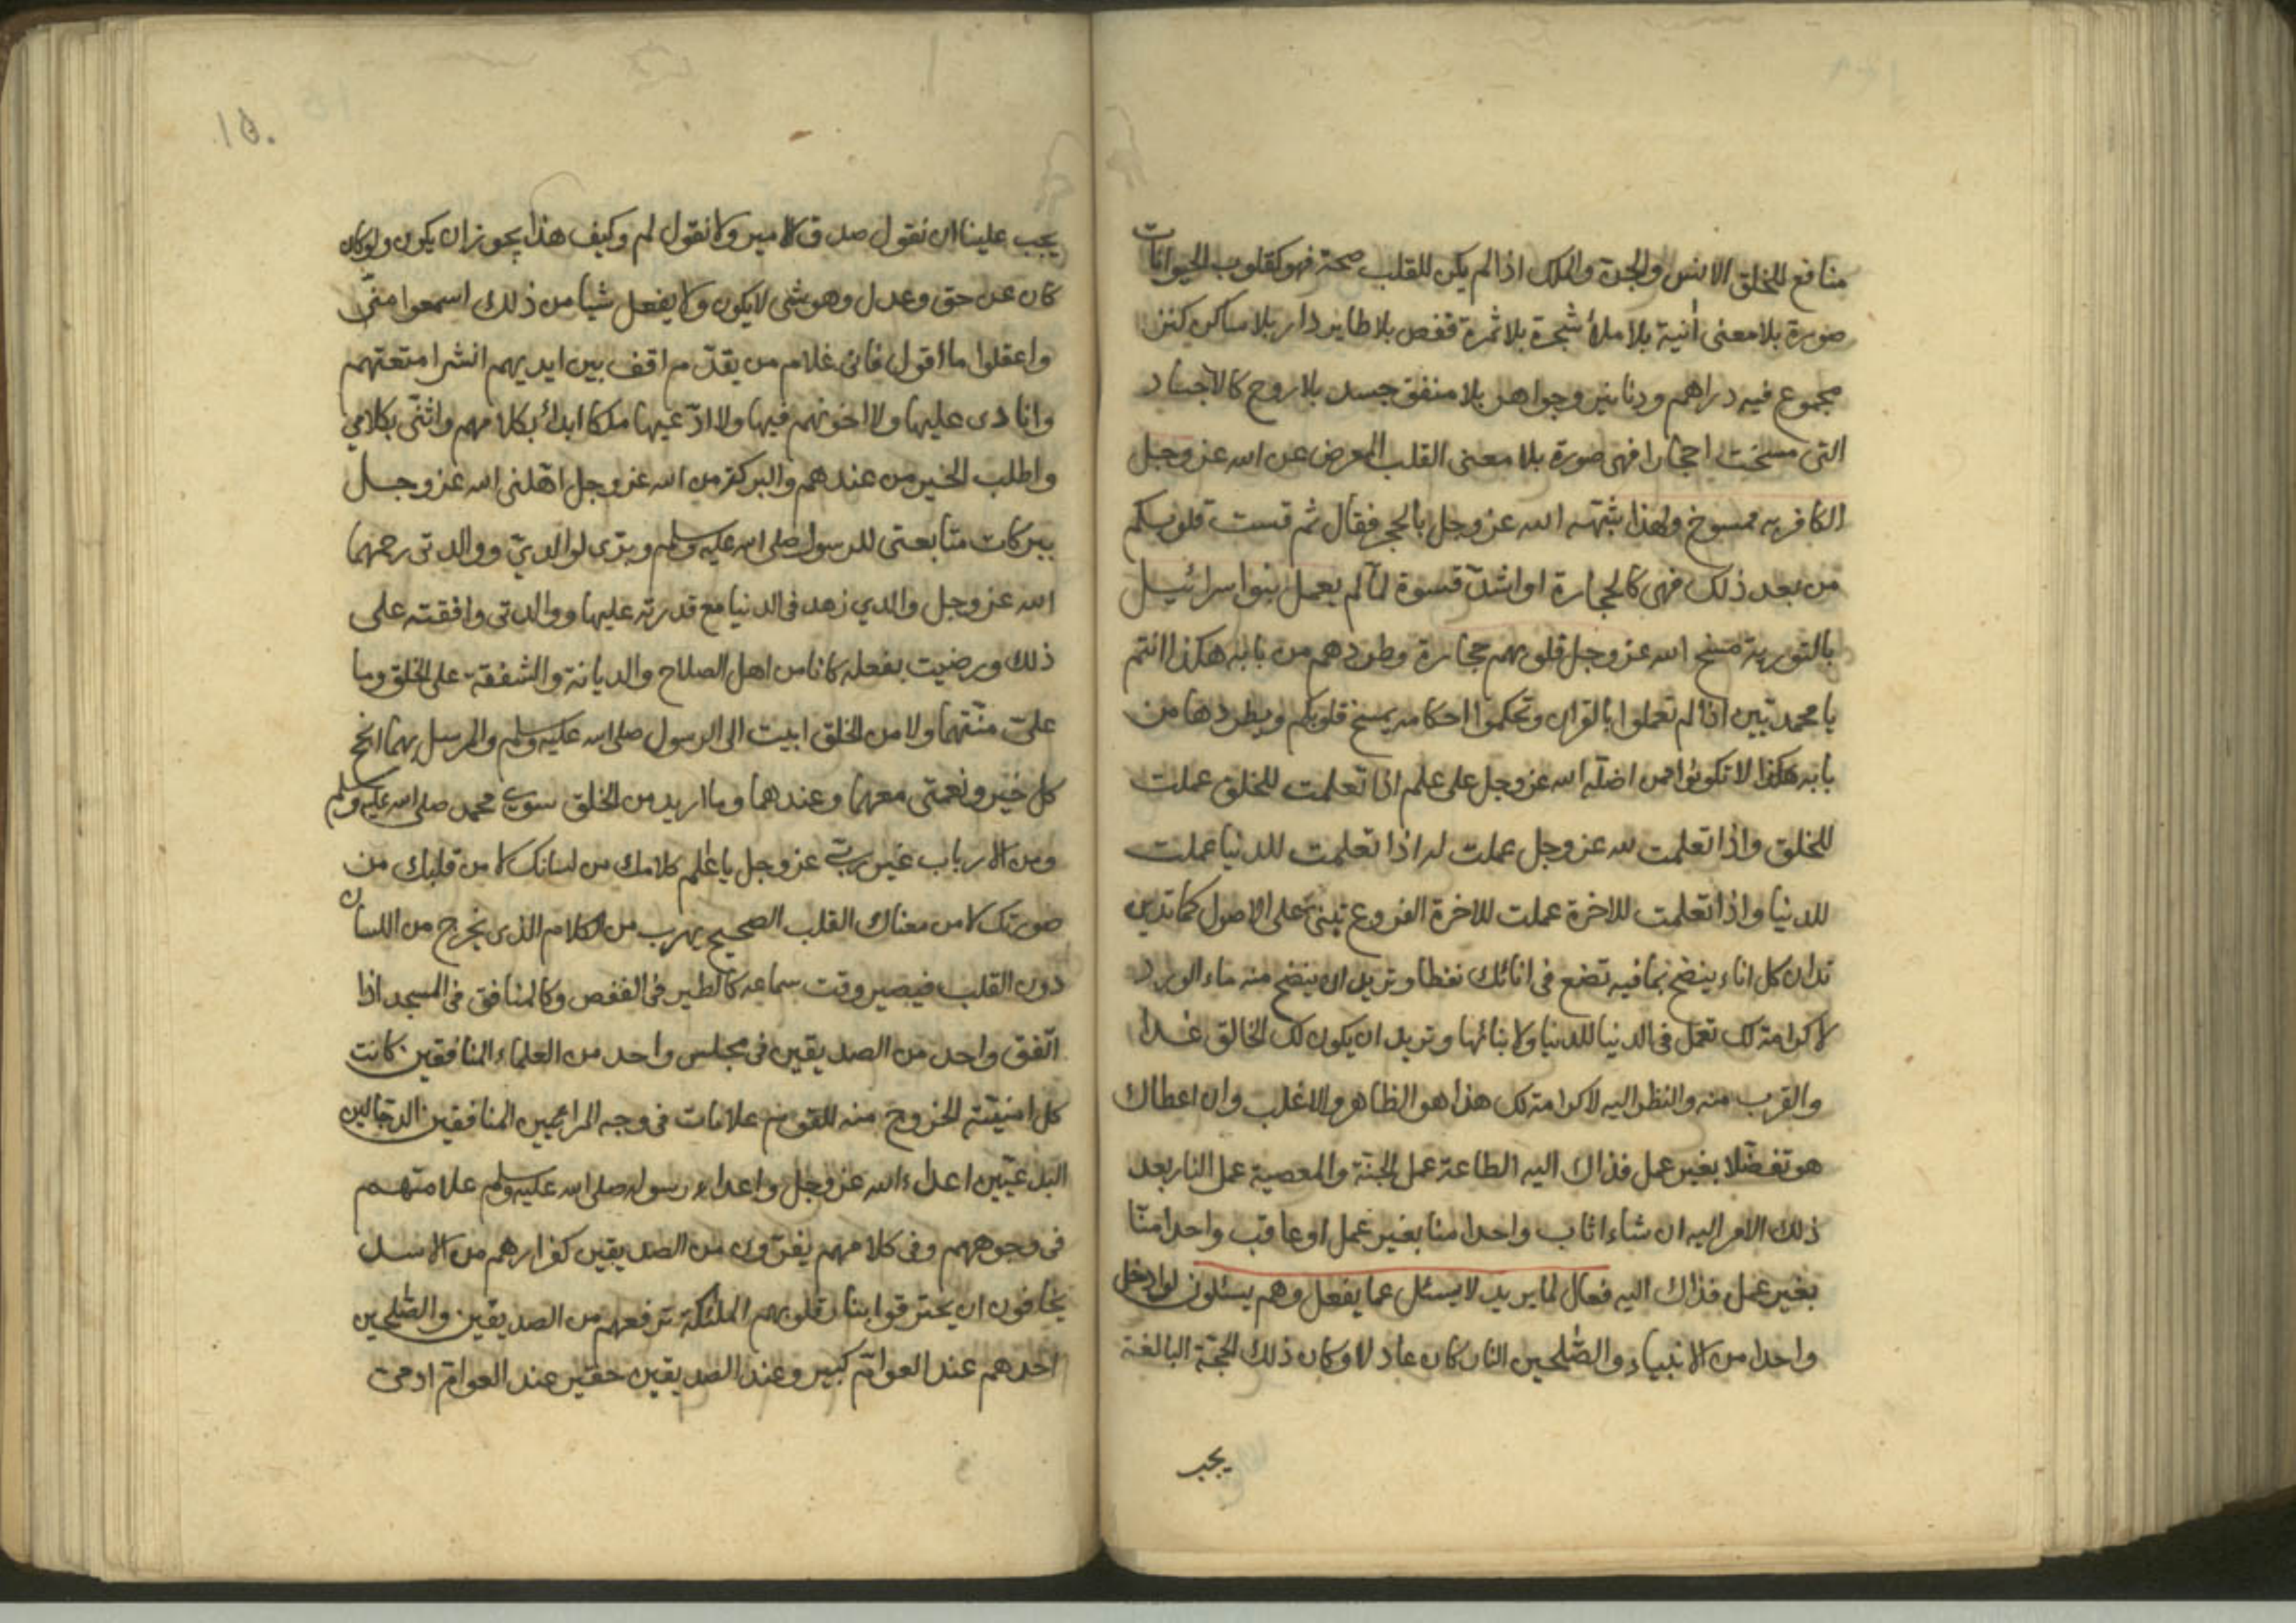 منافع للخلق الانس والجن والملك اذا لم يكن للقلب صحة فهو كقلوب الحيوانات
صورة بلا معنى انية بلا ملأ شجرة بلا ثمرة قفص بلا طاير دار بلا ساكن كنز
مجموع فيه دراهم ودنانير وجواهر بلا منفق جسد بلا روح كالاجساد
التى مسخت احجارا فهى صورة بلا معنى القلب المعرض عن الله عز وجل
الكافر به ممسوخ ولهذا شبّهه الله عز وجل بالحجر فقال ثم قست قلوبكم
من بعد ذلك فهى كالحجارة او اشدّ قسوة لمّا لم يعمل بنوا سرائيل
بالتورية مسخ الله عز وجل قلوبهم حجارة وطردهم من بابه هكذا انتم
يا محمديّين اذا لم تعملوا بالقران وتحكموا احكامه يمسخ قلوبكم ويطردها من
بابه هكذا لا تكونوا ممن اضلّه الله عز وجل على علم اذا تعلمت للخلق عملت
للخلق واذا تعلمت لله عز وجل عملت له اذا تعلمت للدنيا عملت
للدنيا واذا تعلمت للاخرة عملت للاخرة الفروع تبنى على الاصول كما تدين
تدان كل اناء ينضح بما فيه تضع فى انائك نفطا وتريد ان ينضح منه ماء الورد
لا كرامة لك تعمل فى الدنيا للدنيا ولابنائها وتريد ان يكون لك الخالق غدا
والقرب منه والنظر اليه لا كرامة لك هذا هو الظاهر والاغلب وان اعطاك
هو تفضّلا بغير عمل فذاك اليه الطاعة عمل الجنّة والمعصية عمل النار بعد
ذلك الامر اليه ان شاء اثاب واحدا منا بغير عمل او عاقب واحدا منّا
بغير عمل فذاك اليه فعال لما يريد لا يسئل عما يفعل وهم يسئلون لو ادخل
واحدا من الانبياء والصّلحين النار كان عادلا وكان ذلك الحجّة البالغة
يجب
١٥٠
يجب علينا ان نقول صدق الامير ولا نقول لم وكيف هذا يجوز ان يكون ولو كان
كان عن حق وعدل وهو شى لا يكون ولا يفعل شيا من ذلك اسمعوا منّى
واعقلوا ما اقول فانى غلام من يقدّم اقف بين ايديهم انشر امتعتهم
وانادى عليها ولا اخونهم فيها ولا ادّعيها ملكا ابدأ بكلامهم واثنّى بكلامي
واطلب الخير من عندهم والبركة من الله عز وجل اهّلنى الله عز وجل
ببركات متابعتى للرسول صلى الله عليه وسلم وبرّى لوالديّ ووالدتى رحمهما
الله عز وجل والدي زهد فى الدنيا مع قدرته عليها ووالدتى وافقته على
ذلك ورضيت بفعله كانا من اهل الصلاح والديانة والشفقة على الخلق وما
علىّ منّتهما ولا من الخلق ابيت الى الرسول صلى الله عليه وسلم والمرسل بهما انجح
كل خير ونعمتى معهما وعندهما وما اريد من الخلق سوى محمد صلى الله عليه وسلم
ومن الارباب غير ربّى عز وجل يا عٰلم كلامك من لسانك لا من قلبك من
صورتك لا من معناك القلب الصحيح يهرب من الكلام الذى يخرج من اللسان
دون القلب فيصير وقت سماعه كالطير فى القفص وكالمنافق فى المسجد اذا
اتّفق واحد من الصديقين فى مجلس واحد من العلماء المنافقين كانت
كل امنيّته الخروج منه للقوم علامات فى وجه المرائيين المنافقين الدجّالين
البدعيّين اعداء الله عز وجل واعداء رسوله صلى الله عليه وسلم علامتهم
فى وجوههم وفى كلامهم يفرّون من الصديقين كفرارهم من الاسد
يخافون ان يحترقوا بنار قلوبهم الملئكة ترفعهم من الصديقين والصّلحين
احدهم عند العوامّ كبير وعند الصديقين حقير عند العوامّ ادمى